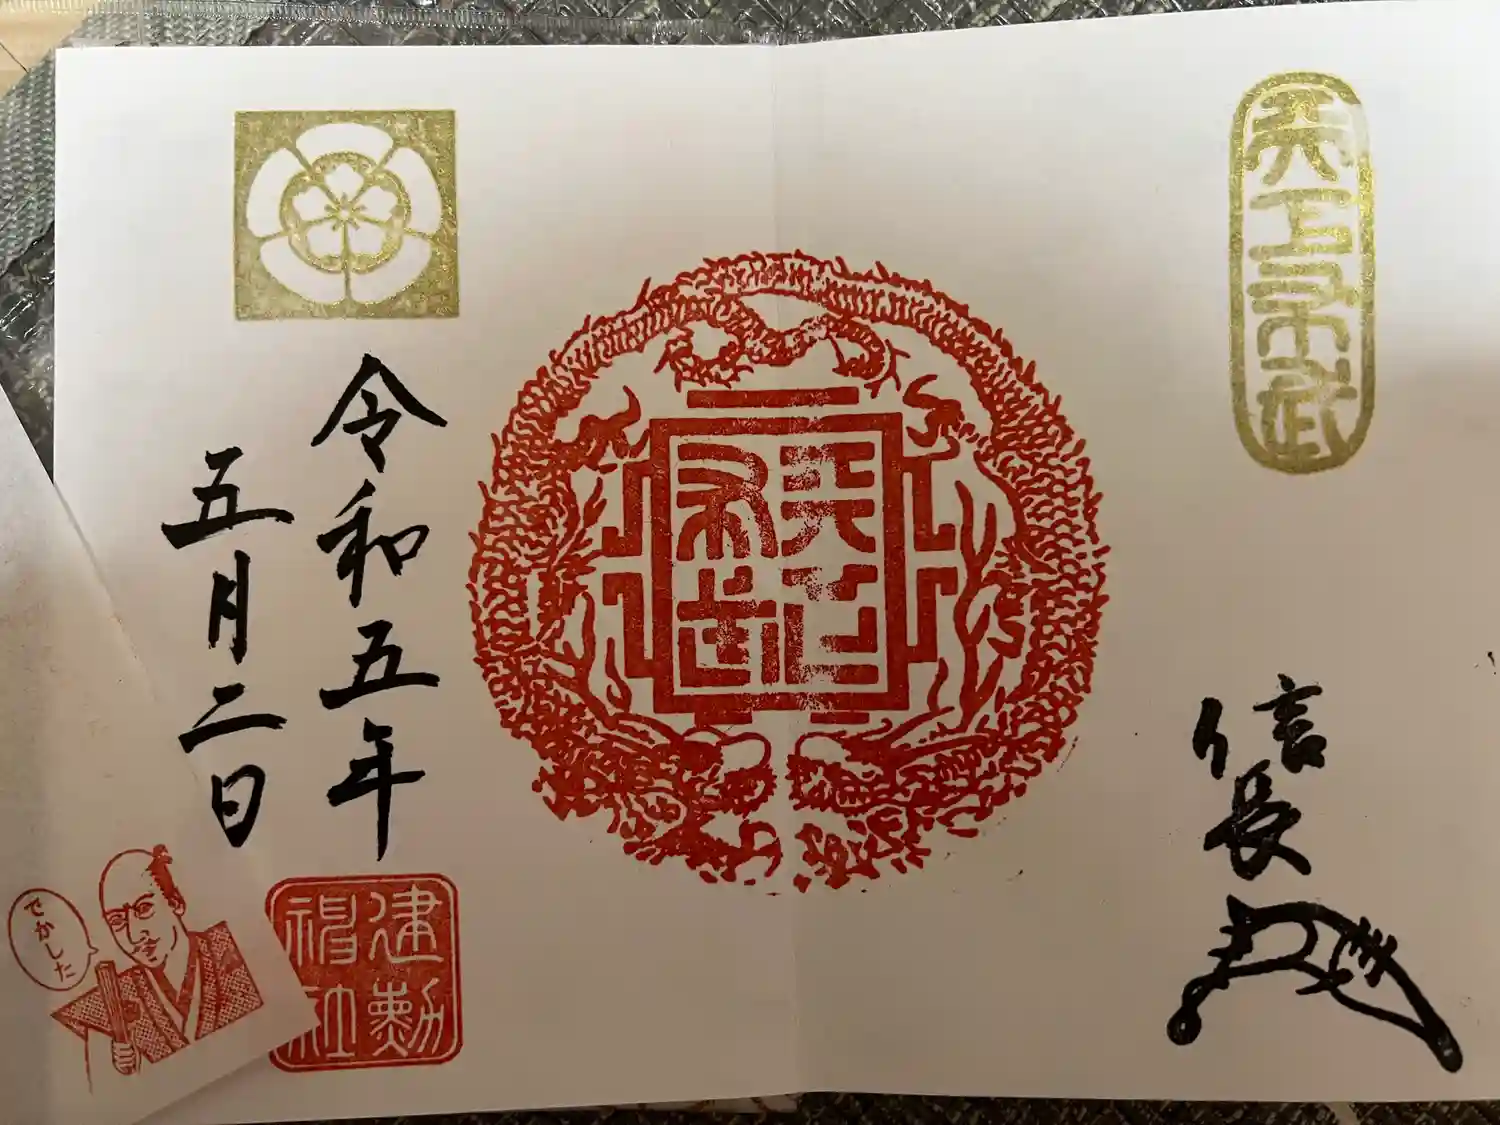 天下布武
信長
天下布武
令和五年
五月二日
建勲神社
でかした